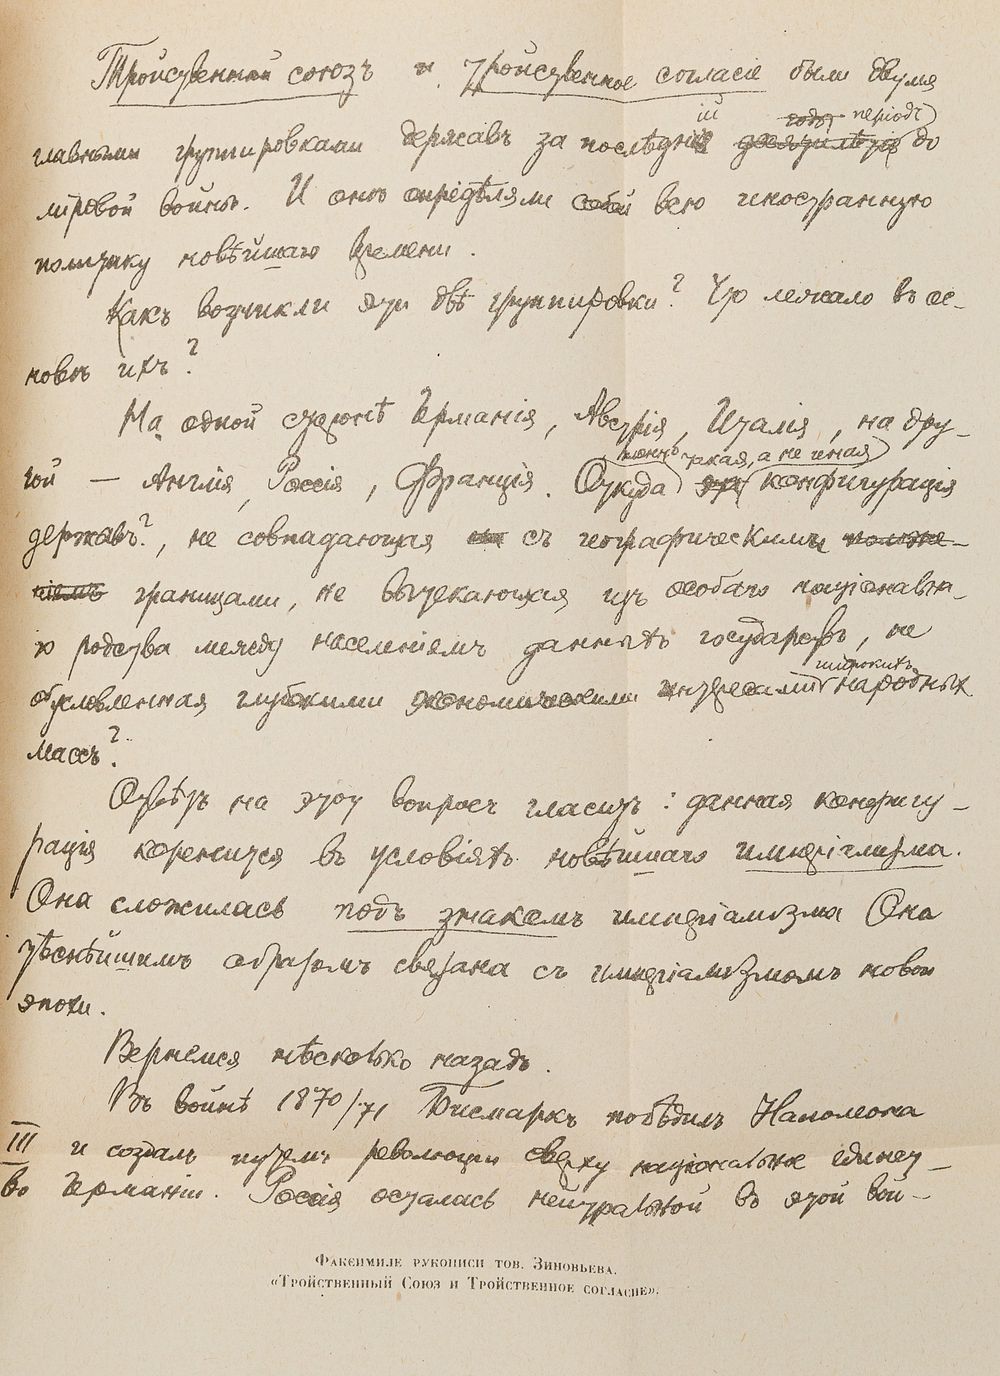 Тройственный союзъ и тройственное согласіе были двумя
iй годы періодъ
главными группировками державъ за послѣдніе десятилѣтія до
міровой войны. И онѣ опредѣляли собой всю иностранную
политику новѣйшаго времени.
Какъ возникли эти двѣ группировки? Что лежало въ ос-
новѣ ихъ?
На одной сторонѣ Германія, Австрія, Италія, на дру-
гой — Англія, Россія, Франція. Откуда эта конфигурація
такая, а не иная
державъ?, не совпадающая съ географическими
границами, не вытекающая изъ особаго національна-
го родства между населеніемъ данныхъ государствъ, не
широкихъ
обусловленная глубокими экономическими интересами народныхъ
массъ?
Отвѣтъ на этотъ вопросъ гласитъ: данная конфигу-
рація коренится въ условіяхъ новѣйшаго имперіализма.
Она сложилась подъ знакомъ имперіализма Она
тѣснѣйшимъ образомъ связана съ имперіализмомъ новой
эпохи.
Вернемся нѣсколько назадъ.
Въ войнѣ 1870/71 Бисмаркъ побѣдилъ Наполеона
III и создалъ путемъ революціи сверху національное единст-
во Германіи. Россія осталась нейтральной въ этой вой-
Факсимиле рукописи тов. Зиновьева.
«Тройственный Союз и Тройственное согласие».